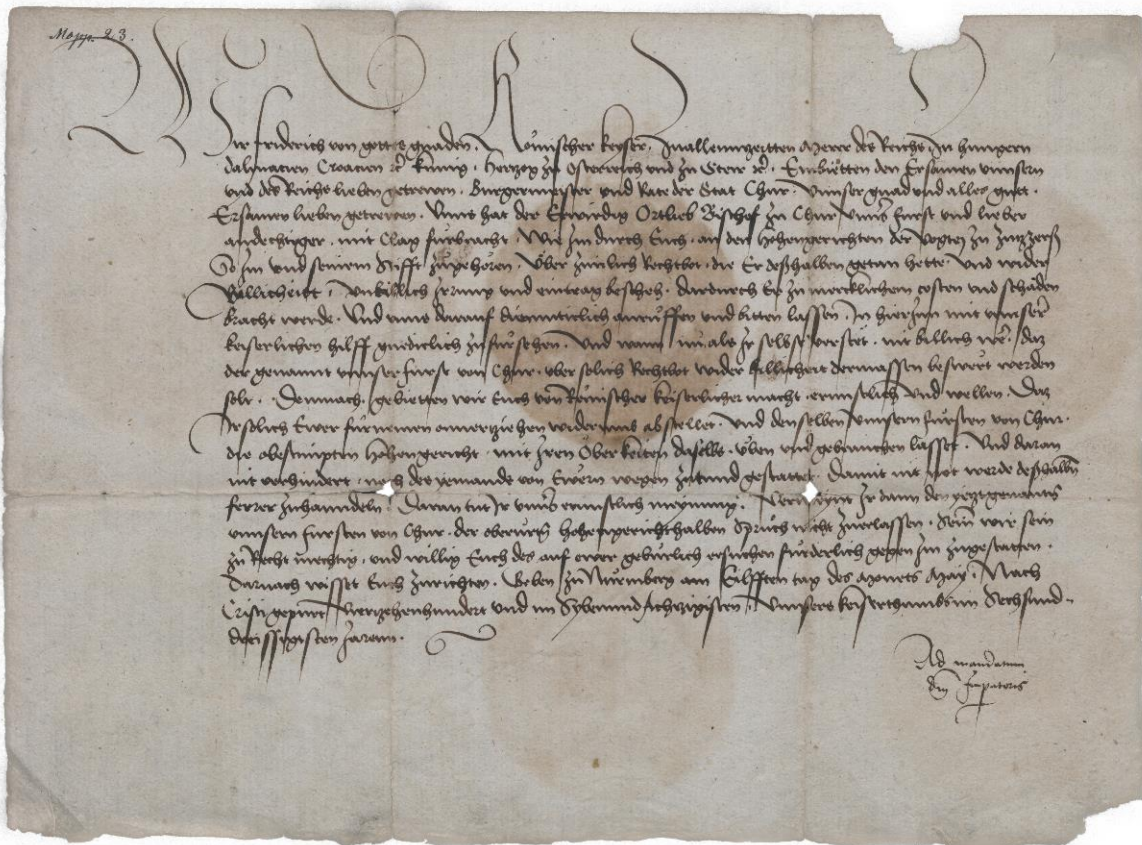 Mapp. 23.
Wir Friderich von gottes gnaden Römischer Keyser, zuallennzeitten Merer des Reichs, zu Hungern
Dalmatien Croatien etc Kunig, Hertzog zu Osterreich vnd zu Steir etc. Embietten den Ersamen vnnsern
vnd des Reichs lieben getrewen. Burgermeister vnd Rate der Stat Chur. vnnser gnad vnd alles gutt.
Ersamen lieben getrewen. Vnns hat der Erwirdig Ortlieb Bischof zu Chur vnnser Furst vnd lieber
andechtiger, mit Clag furbracht. Wie Im durch Euch, an den Hohengerichten der Vogtey zu
So Im vnd seinem Stifft zugehoren. Vber zimlich Rechtbot, die Er deßhalben getan hette, vnd wider
Billicheit, vnbillich Irrung vnd eintrag bescheh, dardurch Er zu mercklichem costen vnd schaden
bracht werde. Vnd vnns darauf diemuticlich anruffen vnd bitten lassen, Im hierInn mit vnnser
keiserlichen hilff gnediclich zufursehen. Vnd wann nu als Ir selbs verstet, nit billich wer, daz
der genannt vnnser Furst von Chur, vber solich Rechtbot wider billicheit dermassen beswert werden
solt. Demnach gebietten wir Euch von Römischer keiserlicher macht, ernnstlich vnd wellen, Daz
Ir solich Ewer furnemen annverziehen wider abstellet, vnd denselben vnnsern Fursten von Chur.
die obestimpten Hohengericht, mit Iren Oberkeiten daselbs, vben vnd gebrauchen lasset. Vnd daran
nit verhindert, noch des yemands von Ewern wegen zutund gestattet. Damit nit not werde deßhalbn
ferrer zuhanndeln. Daran tut Ir vnnser ernnstlich meynung. Vermeynt Ir dann den yetztgenanten
vnnsern Fursten von Chur, der oberurten hohengerichthalben Spruch nicht zuerlassen. Sein wir sein
zu Recht mechtig, vnd willig Euch des auf ewer geburlich ersuchen furderlich gegen Im zugestatten.
Darnach wisset Euch zurichten. Geben zu Nuremberg am Eilfften tag des Monets May. Nach
Cristi gepurt vierzehenhundert vnd im Sybenundachtzigisten, Vnnsers keiserthumbs im Sechsund-
dreissigisten Jarenn.
Ad mandatum
dni Imperatoris